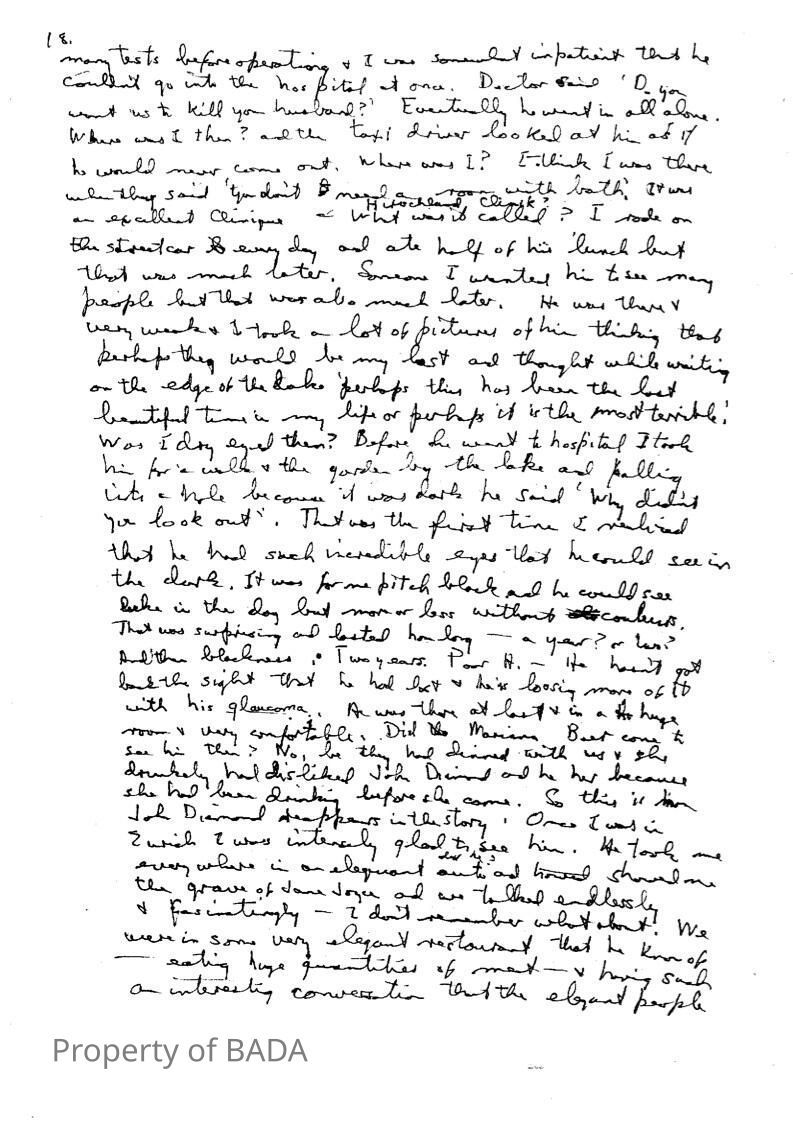 18.
many tests before operating & I was somewhat inpatient that he
couldn't go into the hospital at once. Doctor said 'Do you
want us to kill your husband?' Eventually he went in all alone.
Where was I then? and the taxi driver looked at him as if
he would never come out. Where was I? I think I was there
when they said 'you don't need a room with bath'. It was
Hirschland Clinik?
an excellent Clinique — What was it called? I rode on
the streetcar every day and ate half of his lunch but
that was much later. Someone I wanted him to see many
people but that was also much later. He was there &
very weak & I took a lot of pictures of him thinking that
perhaps they would be my last and thought while waiting
on the edge of the Lake 'perhaps this has been the last
beautiful time in my life or perhaps it is the most terrible'.
Was I dry eyed then? Before he went to hospital I took
him for a walk & the garden by the lake and falling
into a hole because it was dark he said 'Why didn't
you look out'. That was the first time I realized
that he had such incredible eyes that he could see in
the dark. It was for me pitch black and he could see
like in the day but more or less without colours.
That was surprising and lasted how long — a year? or two?
And then blackness. Two years. Poor H. — He hasn't got
back the sight that he had lost & he is loosing more of it
with his glaucoma. He was there at last & in a huge
room & very comfortable. Did the Mariana Beer come to
see him then? No, he they had dinned with us & she
drunkely had disliked John Diamond and he her because
she had been drinking before she came. So this is how
John Diamond disappears in the story. Once I was in
Zurich & I was intensely glad to see him. He took me
everywhere in an elegant auto and showed me
the grave of James Joyce and we talked endlessly
& fascinatingly — I don't remember what about. We
were in some very elegant restaurant that he knew of
— eating huge quantities of meat — & having such
an interesting conversation that the elegant people
Property of BADA